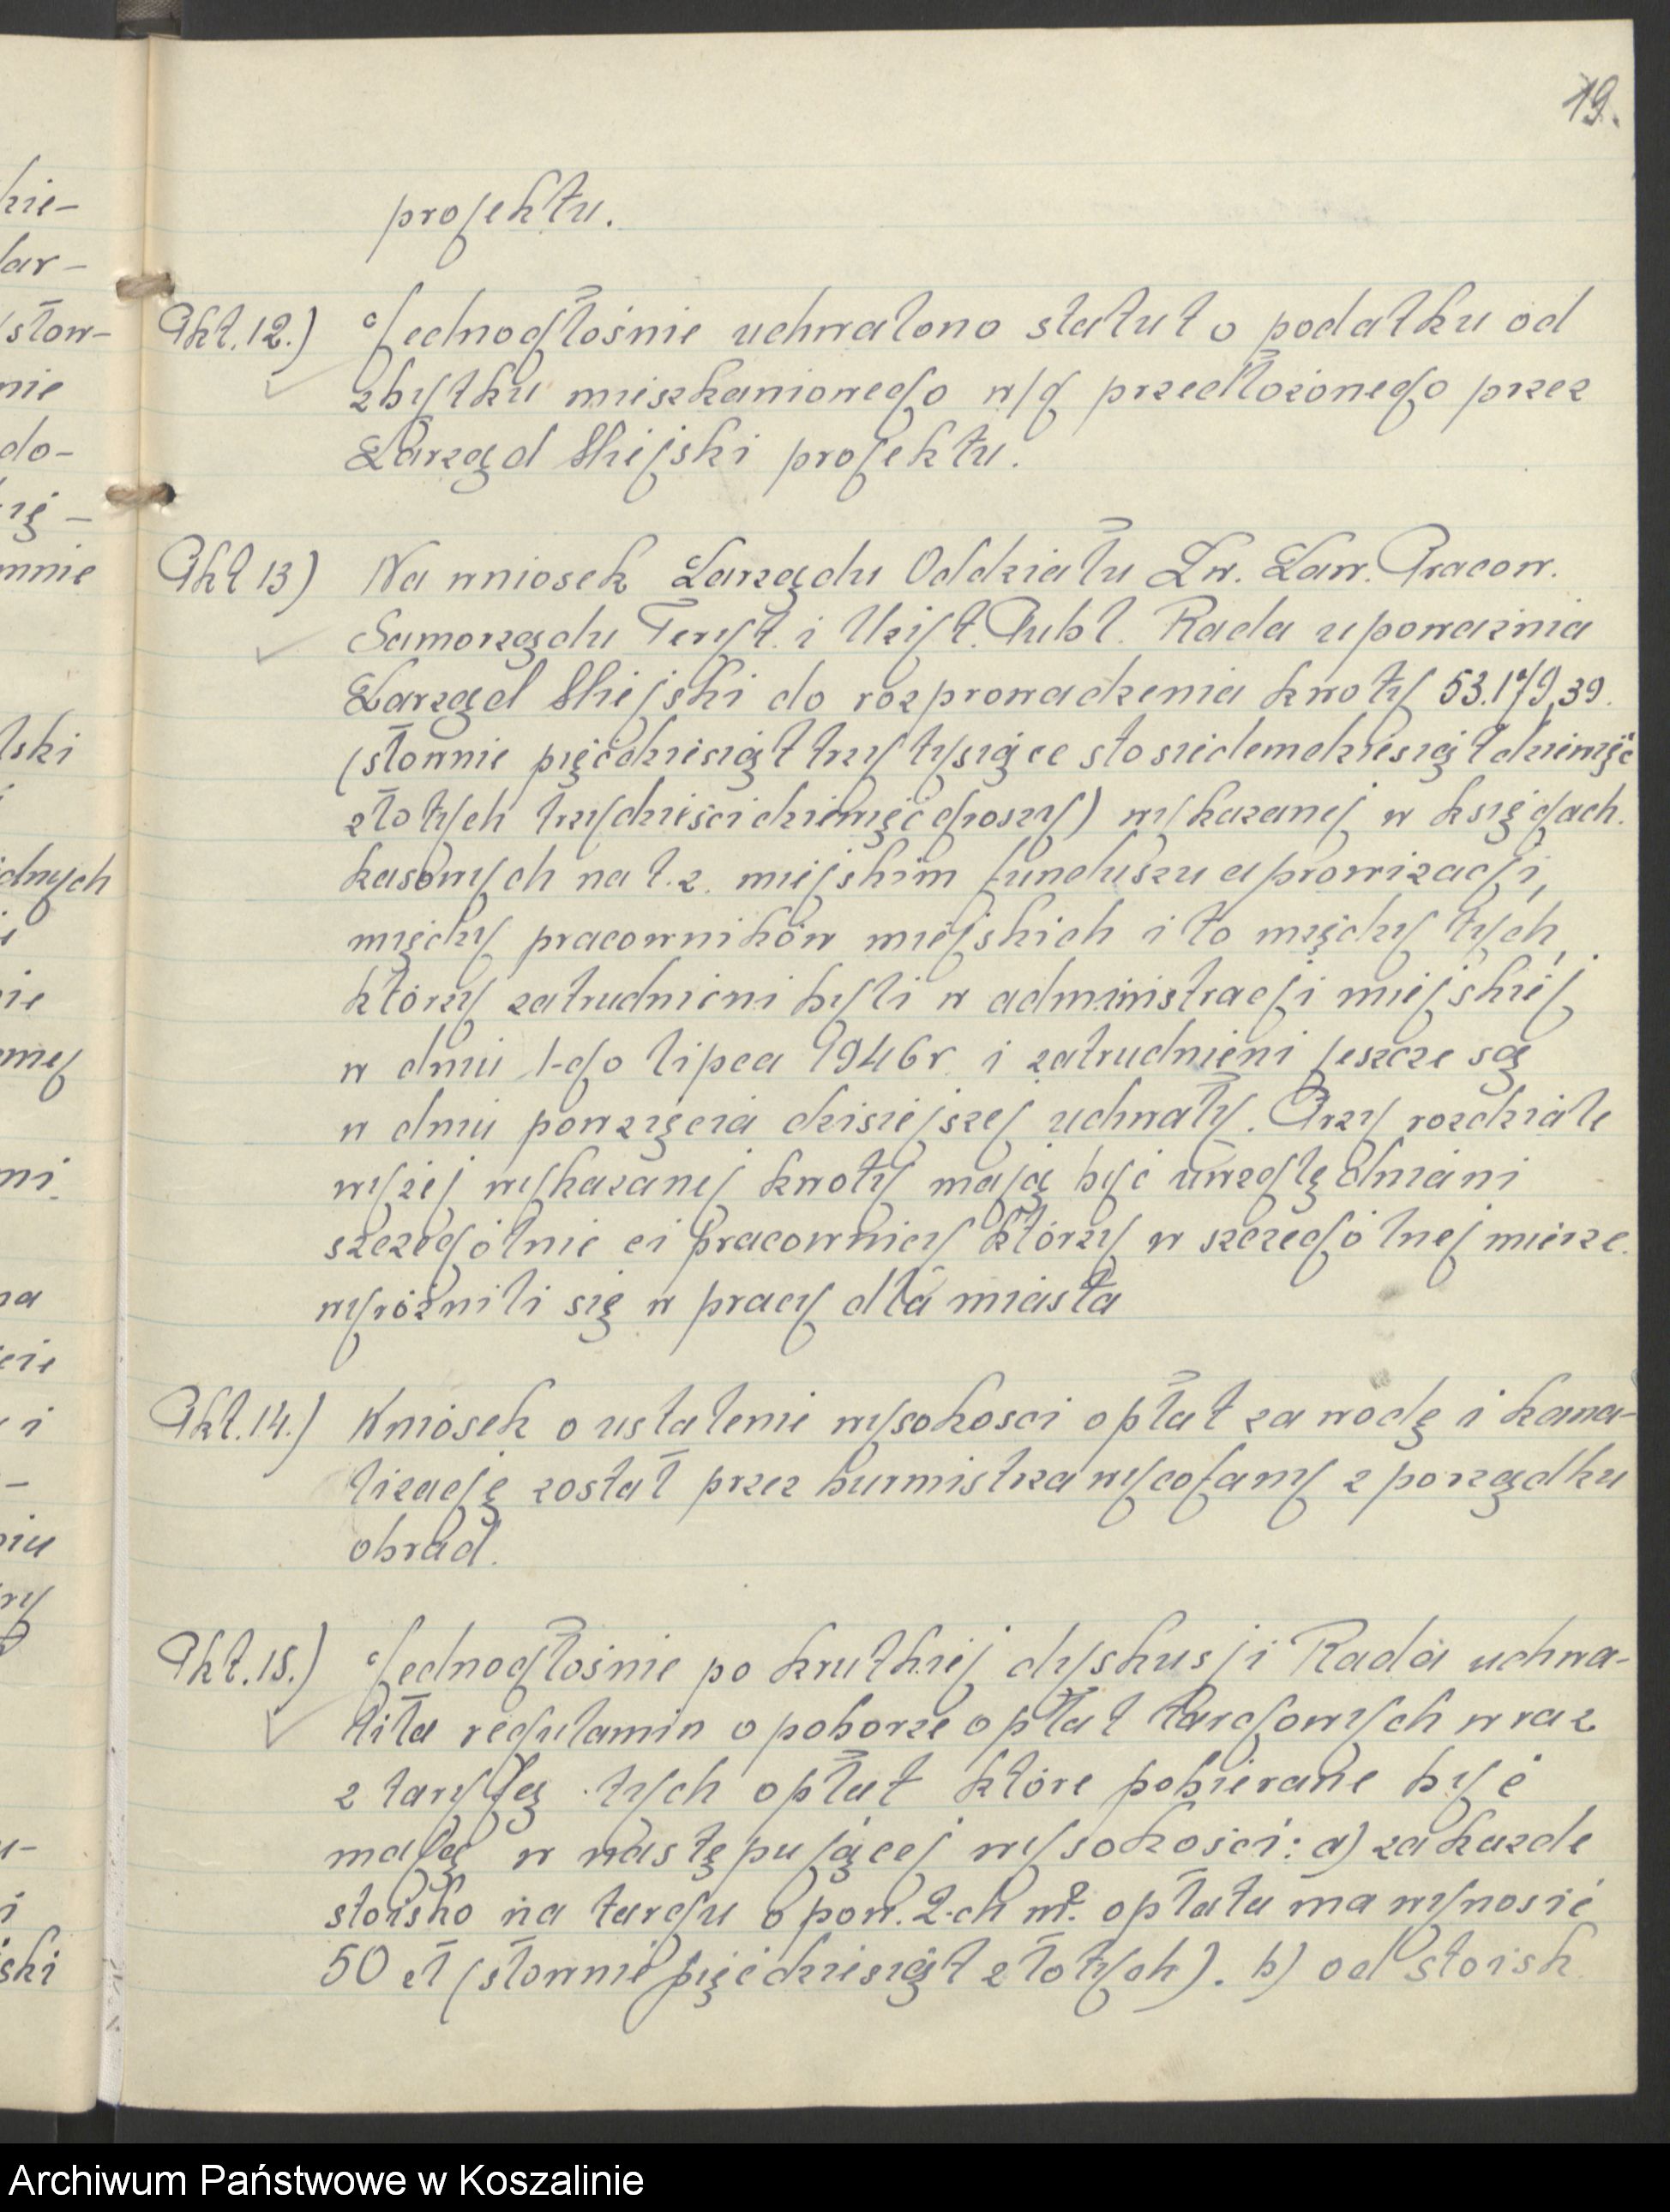 19.
projektu.
Pkt. 12.) Jednogłośnie uchwalono statut o podatku od
zbytku mieszkaniowego w/g przedłożonego przez
Zarząd Miejski projektu.
Pkt 13) Na wniosek Zarządu Oddziału Zw. Zaw. Pracow.
Samorządu Teryt. i Użyt. Publ. Rada upoważnia
Zarząd Miejski do rozprowadzenia kwoty 53.179,39.
(słownie pięćdziesiąt trzy tysiące sto siedemdziesiąt dziewięć
złotych trzydzieści dziewięć groszy) wykazanej w księgach
kasowych na t.z. miejskim funduszu aprowizacji,
między pracowników miejskich i to między tych,
którzy zatrudnieni byli w administracji miejskiej
w dniu 1-go lipca 1946 r. i zatrudnieni jeszcze są
w dniu powzięcia dzisiejszej uchwały. Przy rozdziale
wyżej wykazanej kwoty mają być uwzględniani
szczególnie ci pracownicy którzy w szczególnej mierze
wyróżnili się w pracy dla miasta
Pkt. 14.) Wniosek o ustalenie wysokosci opłat za wodę i kana-
lizację został przez burmistrza wycofany z porządku
obrad.
Pkt. 15.) Jednogłośnie po krutkiej dyskusji Rada uchwa-
liła regulamin o poborze opłat targowych wraz
z taryfą tych opłat które pobierane być
mają w następującej wysokości: a) za każde
stoisko na targu o pow. 2-ch m². opłata ma wynosić
50 zł (słownie pięćdziesiąt złotych). b) od stoisk
kie-
lar-
(słow-
nie
do-
się-
mnie
lski
dnych
i
nie
mi.
na
cie
i
niu
ry
u-
i
jski
Archiwum Państwowe w Koszalinie